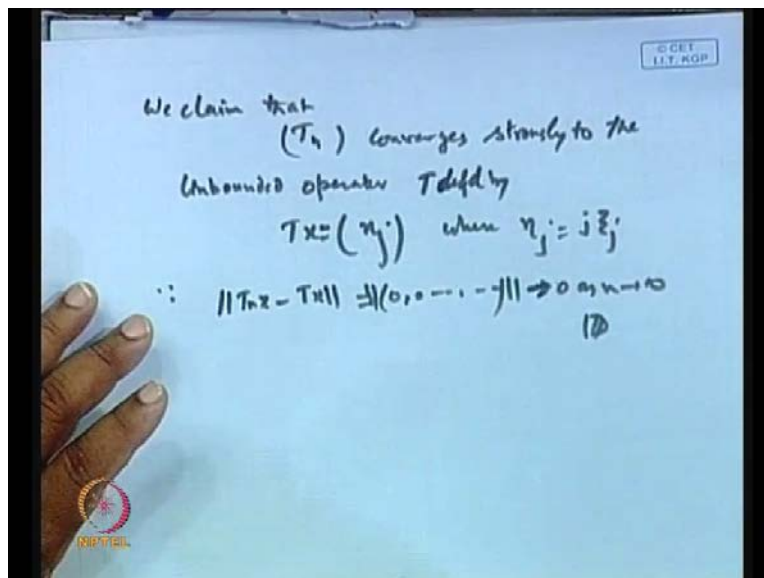 © CET
I.I.T. KGP
We claim that
(Tₙ) converges strongly to the
Unbounded operator T defd by
Tx = (ηⱼ) where ηⱼ = jξⱼ
∵ ||Tₙx - Tx|| = ||(0, 0 ---, -)|| → 0 as n → ∞
NPTEL